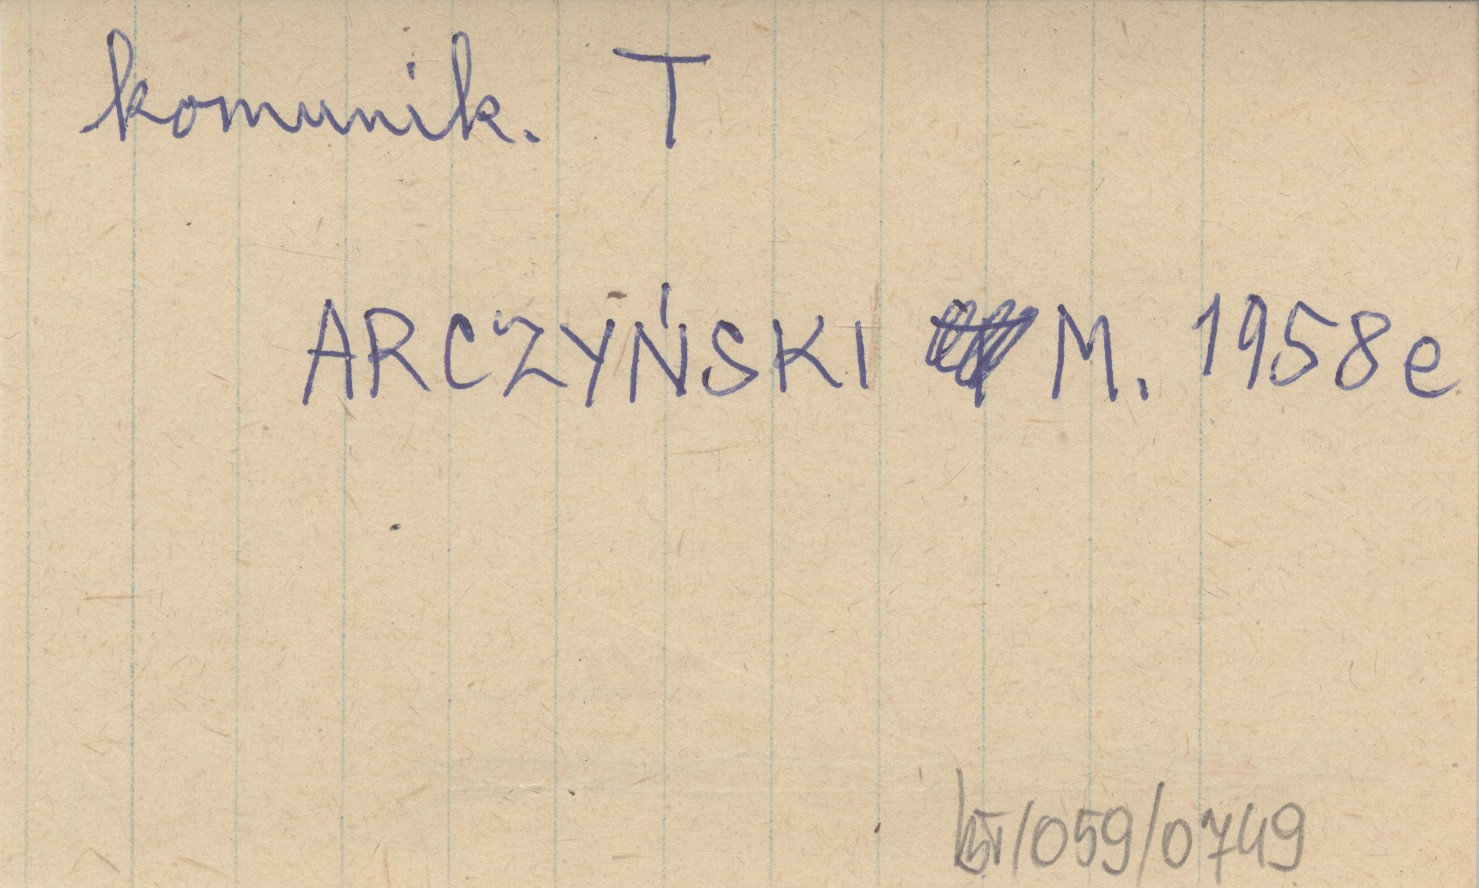 komunik. T
ARCZYŃSKI M. 1958e
/059/0749